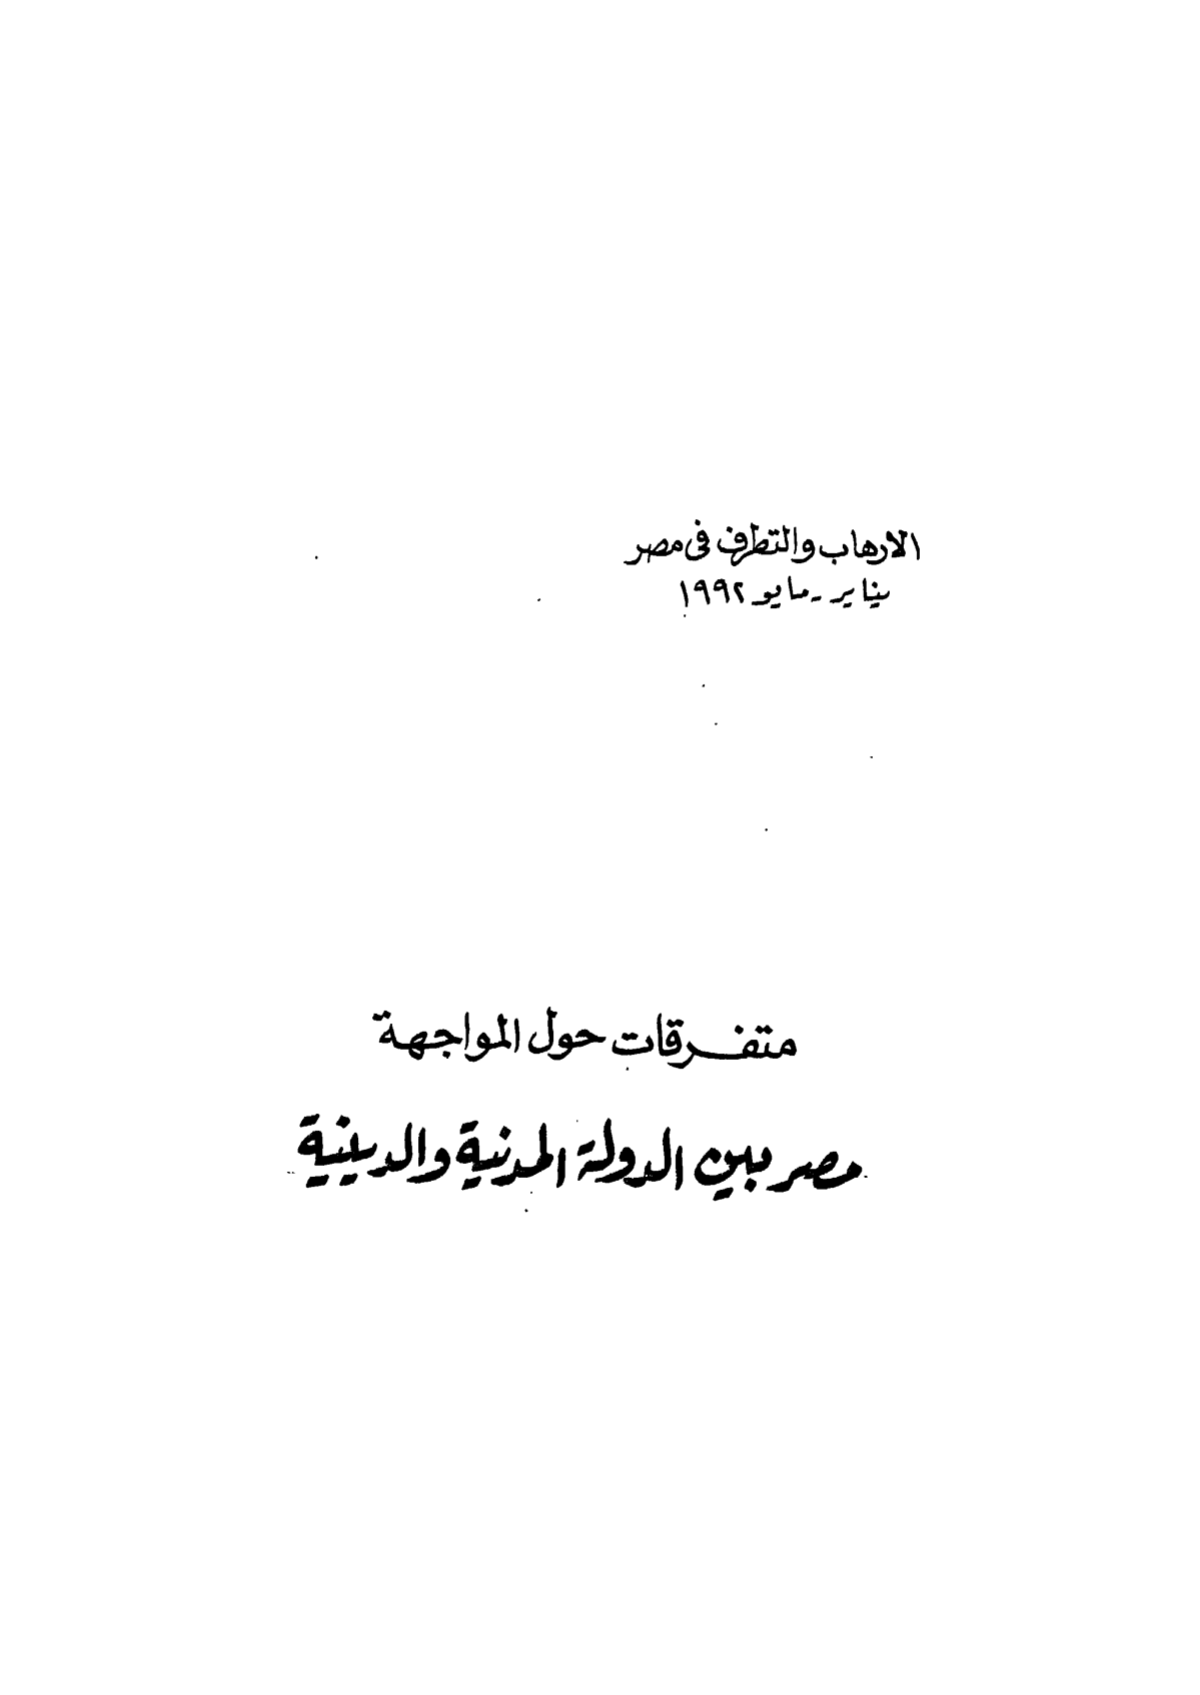 الارهاب والتطرف فى مصر
يناير - مايو ١٩٩٢
متفرقات حول المواجهة
مصر بين الدولة المدنية والدينية